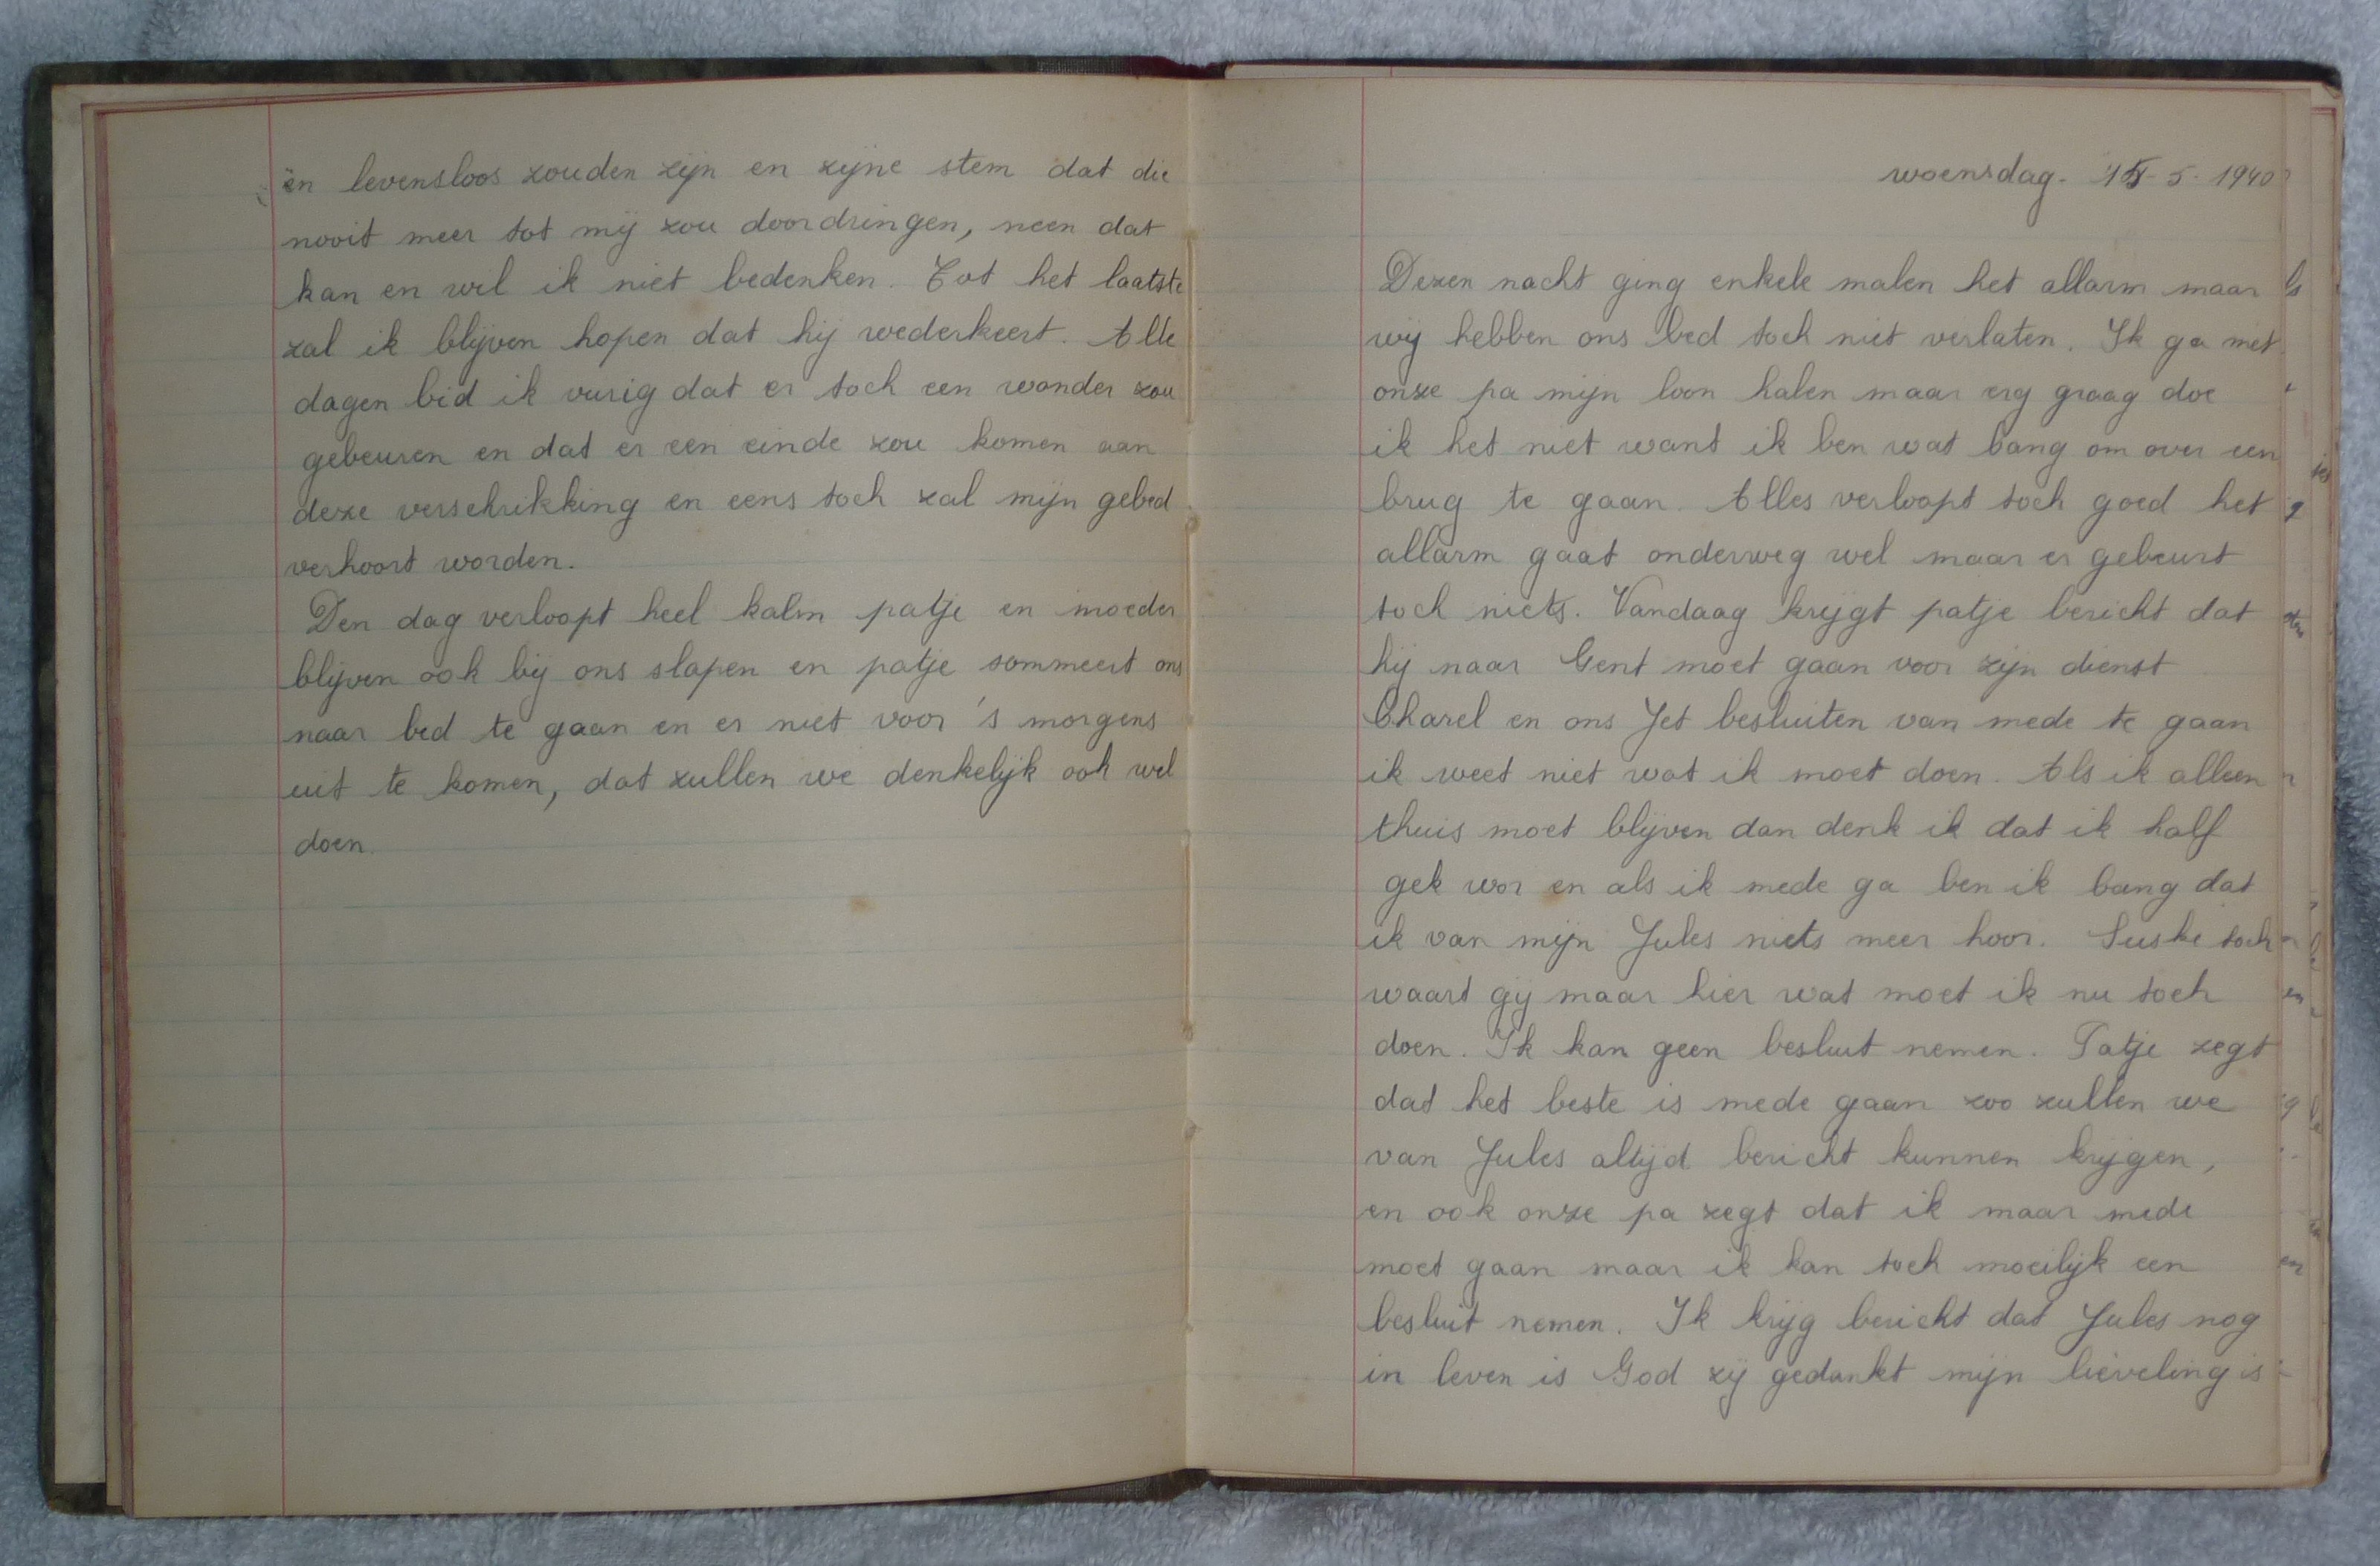 en levensloos zouden zijn en zijne stem dat die
nooit meer tot mij zou doordringen, neen dat
kan en wil ik niet bedenken. Tot het laatste
zal ik blijven hopen dat hij wederkeert. Alle
dagen bid ik vurig dat er toch een wonder zou
gebeuren en dat er een einde zou komen aan
deze verschrikking en eens toch zal mijn gebed
verhoort worden.
Den dag verloopt heel kalm patje en moeder
blijven ook bij ons slapen en patje sommeert ons
naar bed te gaan en er niet voor 's morgens
uit te komen, dat zullen we denkelijk ook wel
doen.
woensdag. 15-5-1940
Dezen nacht ging enkele malen het allarm maar
wij hebben ons bed toch niet verlaten. Ik ga met
onze pa mijn loon halen maar erg graag doe
ik het niet want ik ben wat bang om over een
brug te gaan. Alles verloopt toch goed het
allarm gaat onderweg wel maar er gebeurt
toch niets. Vandaag krijgt patje bericht dat
hij naar Gent moet gaan voor zijn dienst
Charel en ons Jet besluiten van mede te gaan
ik weet niet wat ik moet doen. Als ik alleen
thuis moet blijven dan denk ik dat ik half
gek wor en als ik mede ga ben ik bang dat
ik van mijn Jules niets meer hoor. Suske toch
waart gij maar hier wat moet ik nu toch
doen. Ik kan geen besluit nemen. Patje zegt
dat het beste is mede gaan zoo zullen we
van Jules altijd bericht kunnen krijgen,
en ook onze pa zegt dat ik maar mede
moet gaan maar ik kan toch moeilijk een
besluit nemen. Ik krijg bericht dat Jules nog
in leven is God zij gedankt mijn lieveling is